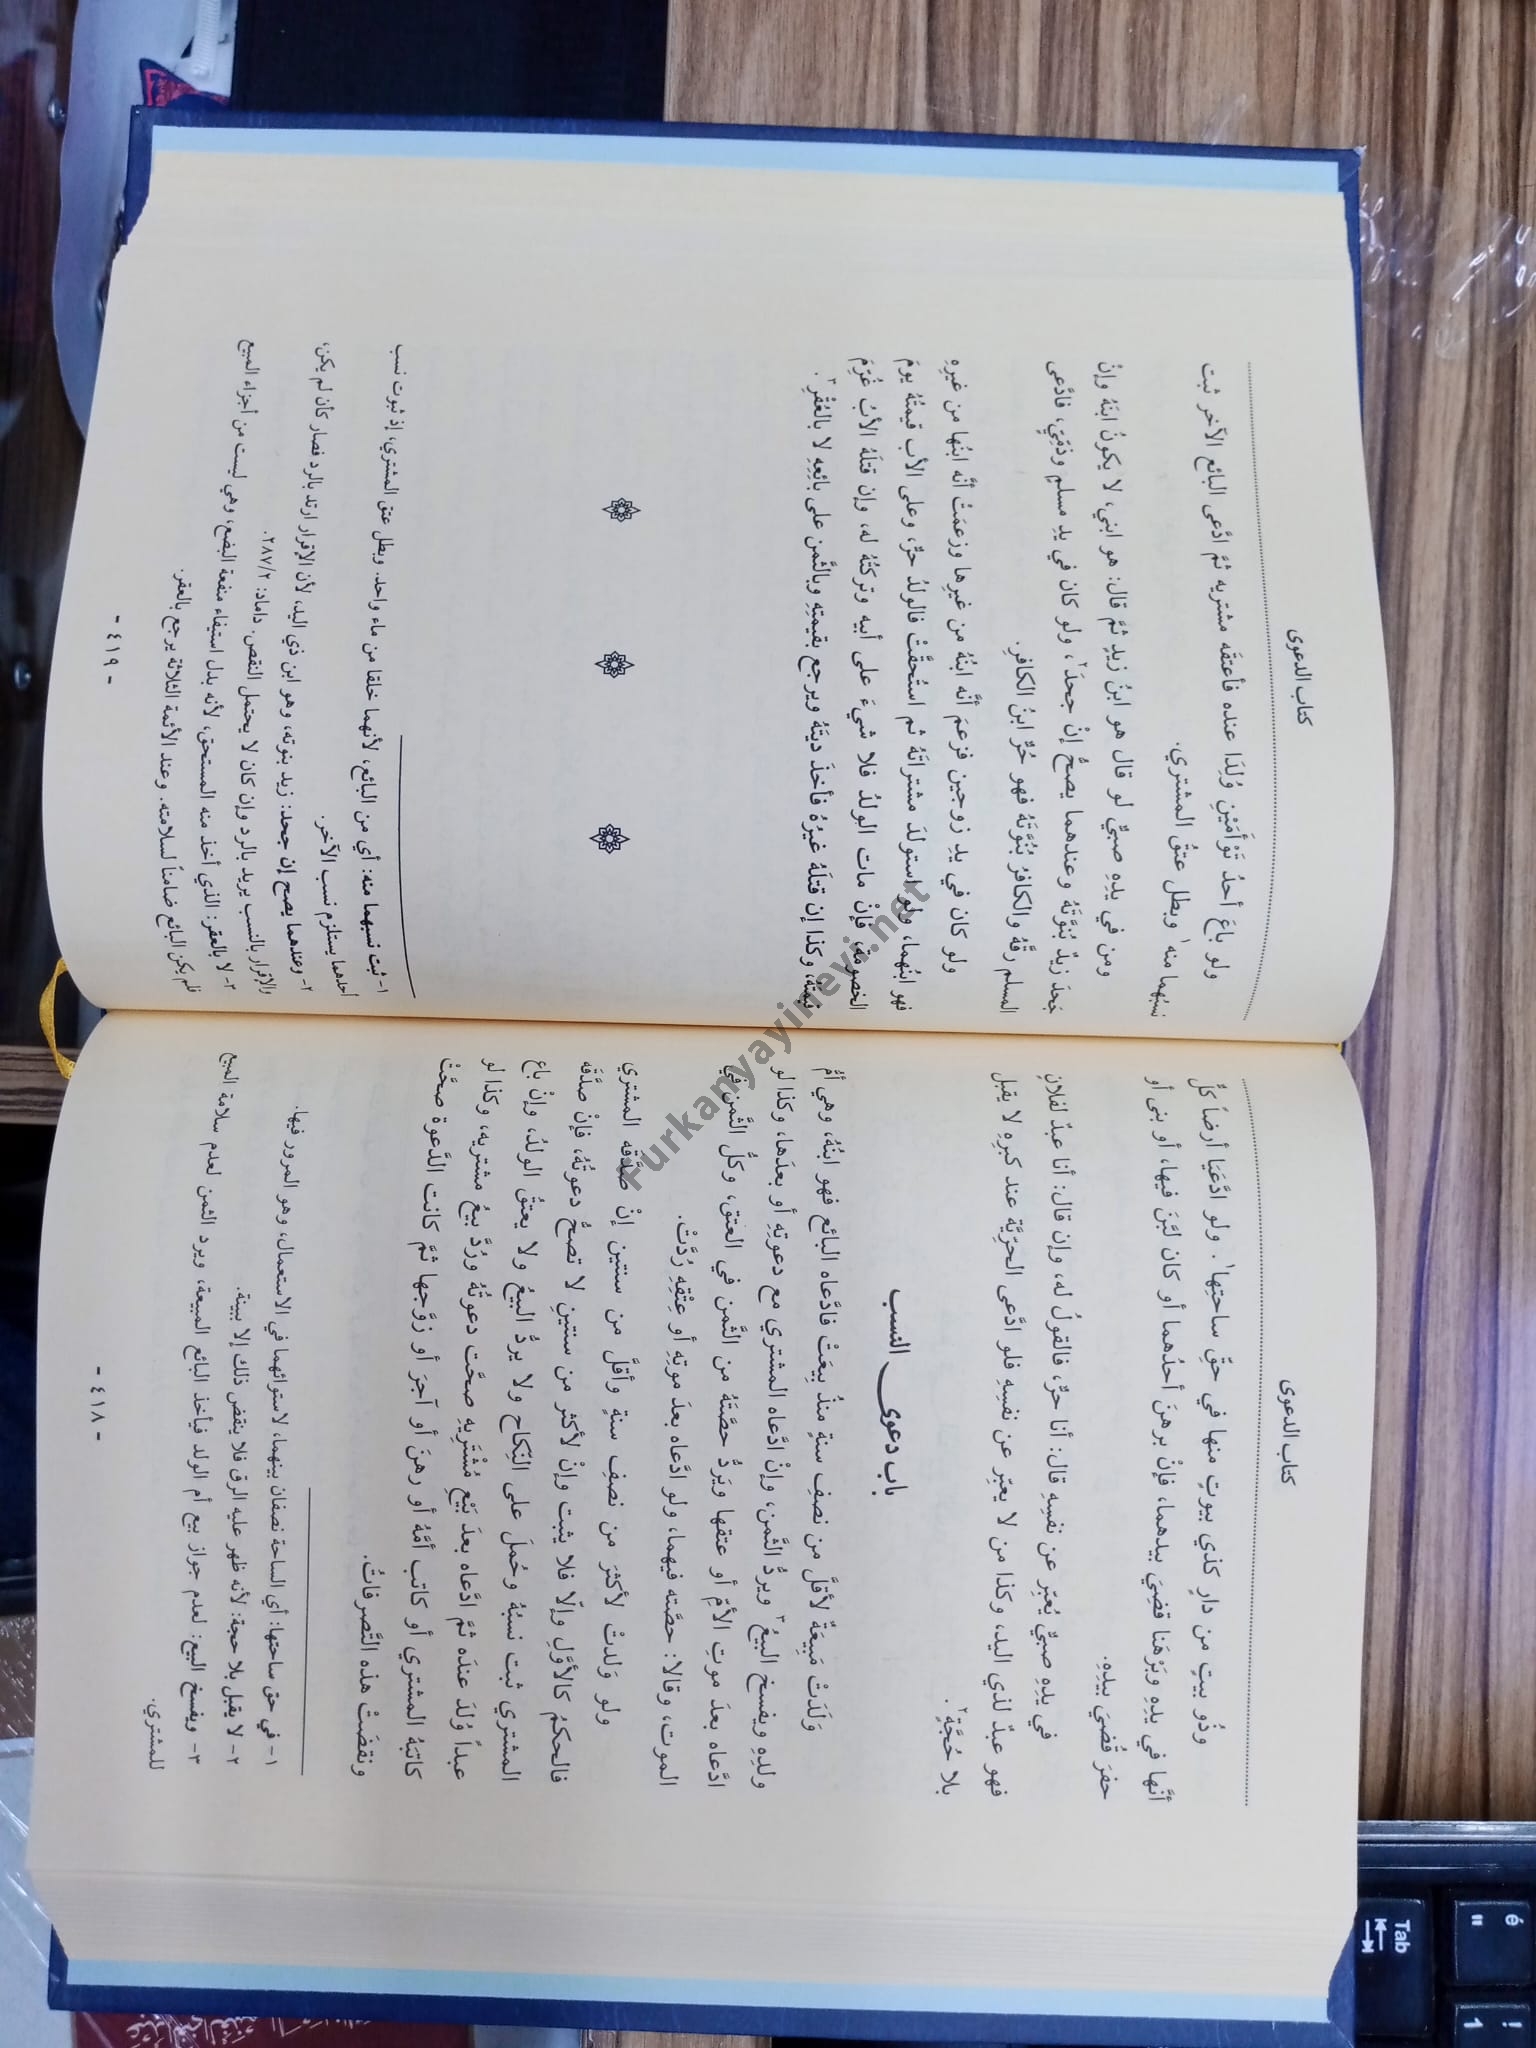 كتاب الدعوى
وذُو بيتٍ من دارٍ كذي بيوتٍ منها في حقِّ ساحتِها١. ولو ادَّعَيَا أرضاً كلٌّ
أنَّها في يدِهِ وبَرْهَنا قضِيَ بيدهما، فإنْ برهنَ أحدُهما أو كان لبَّنَ فيها، أو بنى أو
حفرَ قُضِيَ بيدِهِ.
في يدِهِ صبيٌّ يُعبِّر عن نفسِهِ قال: أنا حرٌّ، فالقولُ له، وإن قال: أنا عبدٌ لفلانٍ
فهو عبدٌ لذي اليد، وكذا من لا يعبِّر عن نفسِهِ فلو ادَّعى الحرِّيَّة عند كبرِهِ لا يقبل
بلا حُجَّةٍ٢.
باب دعوى النسب
وَلَدَتْ مَبِيعَةٌ لأقلَّ من نصفِ سنةٍ منذُ بِيعَتْ فادَّعاه البائع فهو ابنُهُ، وهي أمُّ
ولدِهِ ويفسخ البيعُ٣ ويردُّ الثَّمن، وإنْ ادَّعاه المشتري مع دعوتِهِ أو بعدَها، وكذا لو
ادَّعاه بعدَ موتِ الأمّ أو عتقها ويَردُّ حصَّتَهُ من الثَّمن في العتق، وكلُّ الثَّمن في
الموت، وقالا: حصَّته فيهما، ولو ادَّعاه بعدَ موتِهِ أو عِتْقِهِ رُدَّتْ.
ولو وَلدتْ لأكثرَ من نصفِ سنةٍ وأقلَّ من سنتين إنْ صدَّقه المشتري
فالحكمُ كالأوَّلِ وإلّا فلا يثبت وإنْ لأكثر من سنتينِ لا تصحُّ دعوتُهُ، فإنْ صدَّقَه
المشتري ثبت نسبُهُ وحُملَ على النِّكاح ولا يردُّ البيعُ ولا يعتقُ الولدُ، وإنْ باع
عبداً وُلدَ عندَه ثمَّ ادَّعاه بعدَ بَيْعِ مُشْتَرِيهِ صحَّت دعوتُهُ ورُدَّ بيعُ مشتريه، وكذا لو
كاتبَهُ المشتري أو كاتب أمَّهُ أو رهنَ أو آجرَ أو زوَّجها ثمَّ كانت الدَّعوة صحَّتْ
ونقضَتْ هذه التَّصرفاتُ.
١- في حق ساحتها: أي الساحة نصفان بينهما، لاستوائهما في الاستعمال، وهو المرور فيها.
٢- لا يقبل بلا حجة: لأنه ظهر عليه الرق فلا ينقض ذلك إلا ببينة.
٣- ويفسخ البيع: لعدم جواز بيع أم الولد فيأخذ البائع المبيعة، ويرد الثمن لعدم سلامة المبيع
للمشتري.
- ٤١٨ -
كتاب الدعوى
ولو باعَ أحدُ تَوْأَمَيْنِ وُلِدَا عنده فأعتقَه مشتريه ثمَّ ادَّعى البائع الآخر ثبت
نسبُهما منه١ وبطل عتقُ المشتري.
ومن في يدِهِ صبيٌّ لو قال هو ابنُ زيدٍ ثمَّ قال: هو ابني، لا يكونُ ابنَهُ وإنْ
جَحدَ زيدٌ بُنُوَّتَهُ وعندهما يصحُّ إنْ جحدَ٢، ولو كان في يدِ مسلمٍ وذمِّيّ، فادَّعى
المسلم رقَّهُ والكافرُ بُنُوَّتَهُ فهو حُرٌّ ابنُ الكافرِ.
ولو كان في يدِ زوجين فزعمَ أنَّه ابنُهُ من غيرِها وزعمَتْ أنَّه ابنُها من غيرِهِ
فهو ابنُهما، ولو استولدَ مشتراتَهُ ثم استُحقَّتْ فالولدُ حرٌّ، وعلى الأب قيمتُهُ يومَ
الخصومة، فإنْ مات الولدُ فلا شيءَ على أبيه وتركتُهُ له، وإن قتلَهُ الأبُ غُرِّمَ
قيمتَهُ، وكذا إن قتلَهُ غيرُهُ فأخذَ ديتَهُ ويرجع بقيمتِهِ وبالثَّمن على بائعِهِ لا بالعُقْرِ٣.
١- ثبت نسبهما منه: أي من البائع، لأنهما خلقا من ماء واحد. وبطل عتق المشتري، إذ ثبوت نسب
أحدهما يستلزم نسب الآخر.
٢- وعندهما يصح إن جحد: زيد بنوته، وهو ابن ذي اليد، لأن الإقرار ارتد بالرد فصار كأن لم يكن،
والإقرار بالنسب يريد بالرد وإن كان لا يحتمل النقص. داماد: ٢٨٧/٢.
٣- لا بالعقر: الذي أخذ منه المستحق، لأنه بدل استيفاء منفعة البضع، وهي ليست من أجزاء المبيع
فلم يكن البائع ضامناً لسلامته. وعند الأئمة الثلاثة يرجع بالعقر.
- ٤١٩ -
Furkanyayinevi.net
Tab
é
"
!
1